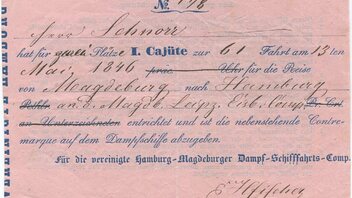 No. 198
Herr Schnorr
hat für zwei Plätze I. Cajüte zur 61 Fahrt am 13 ten
Mai, 1846 prac. Uhr für die Reise
von Magdeburg, nach Hamburg
an d. Magdb. Leipz. Eisb. Comp.
an Unterzeichneten entrichtet und ist die nebenstehende Contre-
marque auf dem Dampfschiffe abzugeben.
Für die vereinigte Hamburg-Magdeburger Dampf-Schifffahrts-Comp.
VEREINIGTE HAMBURG